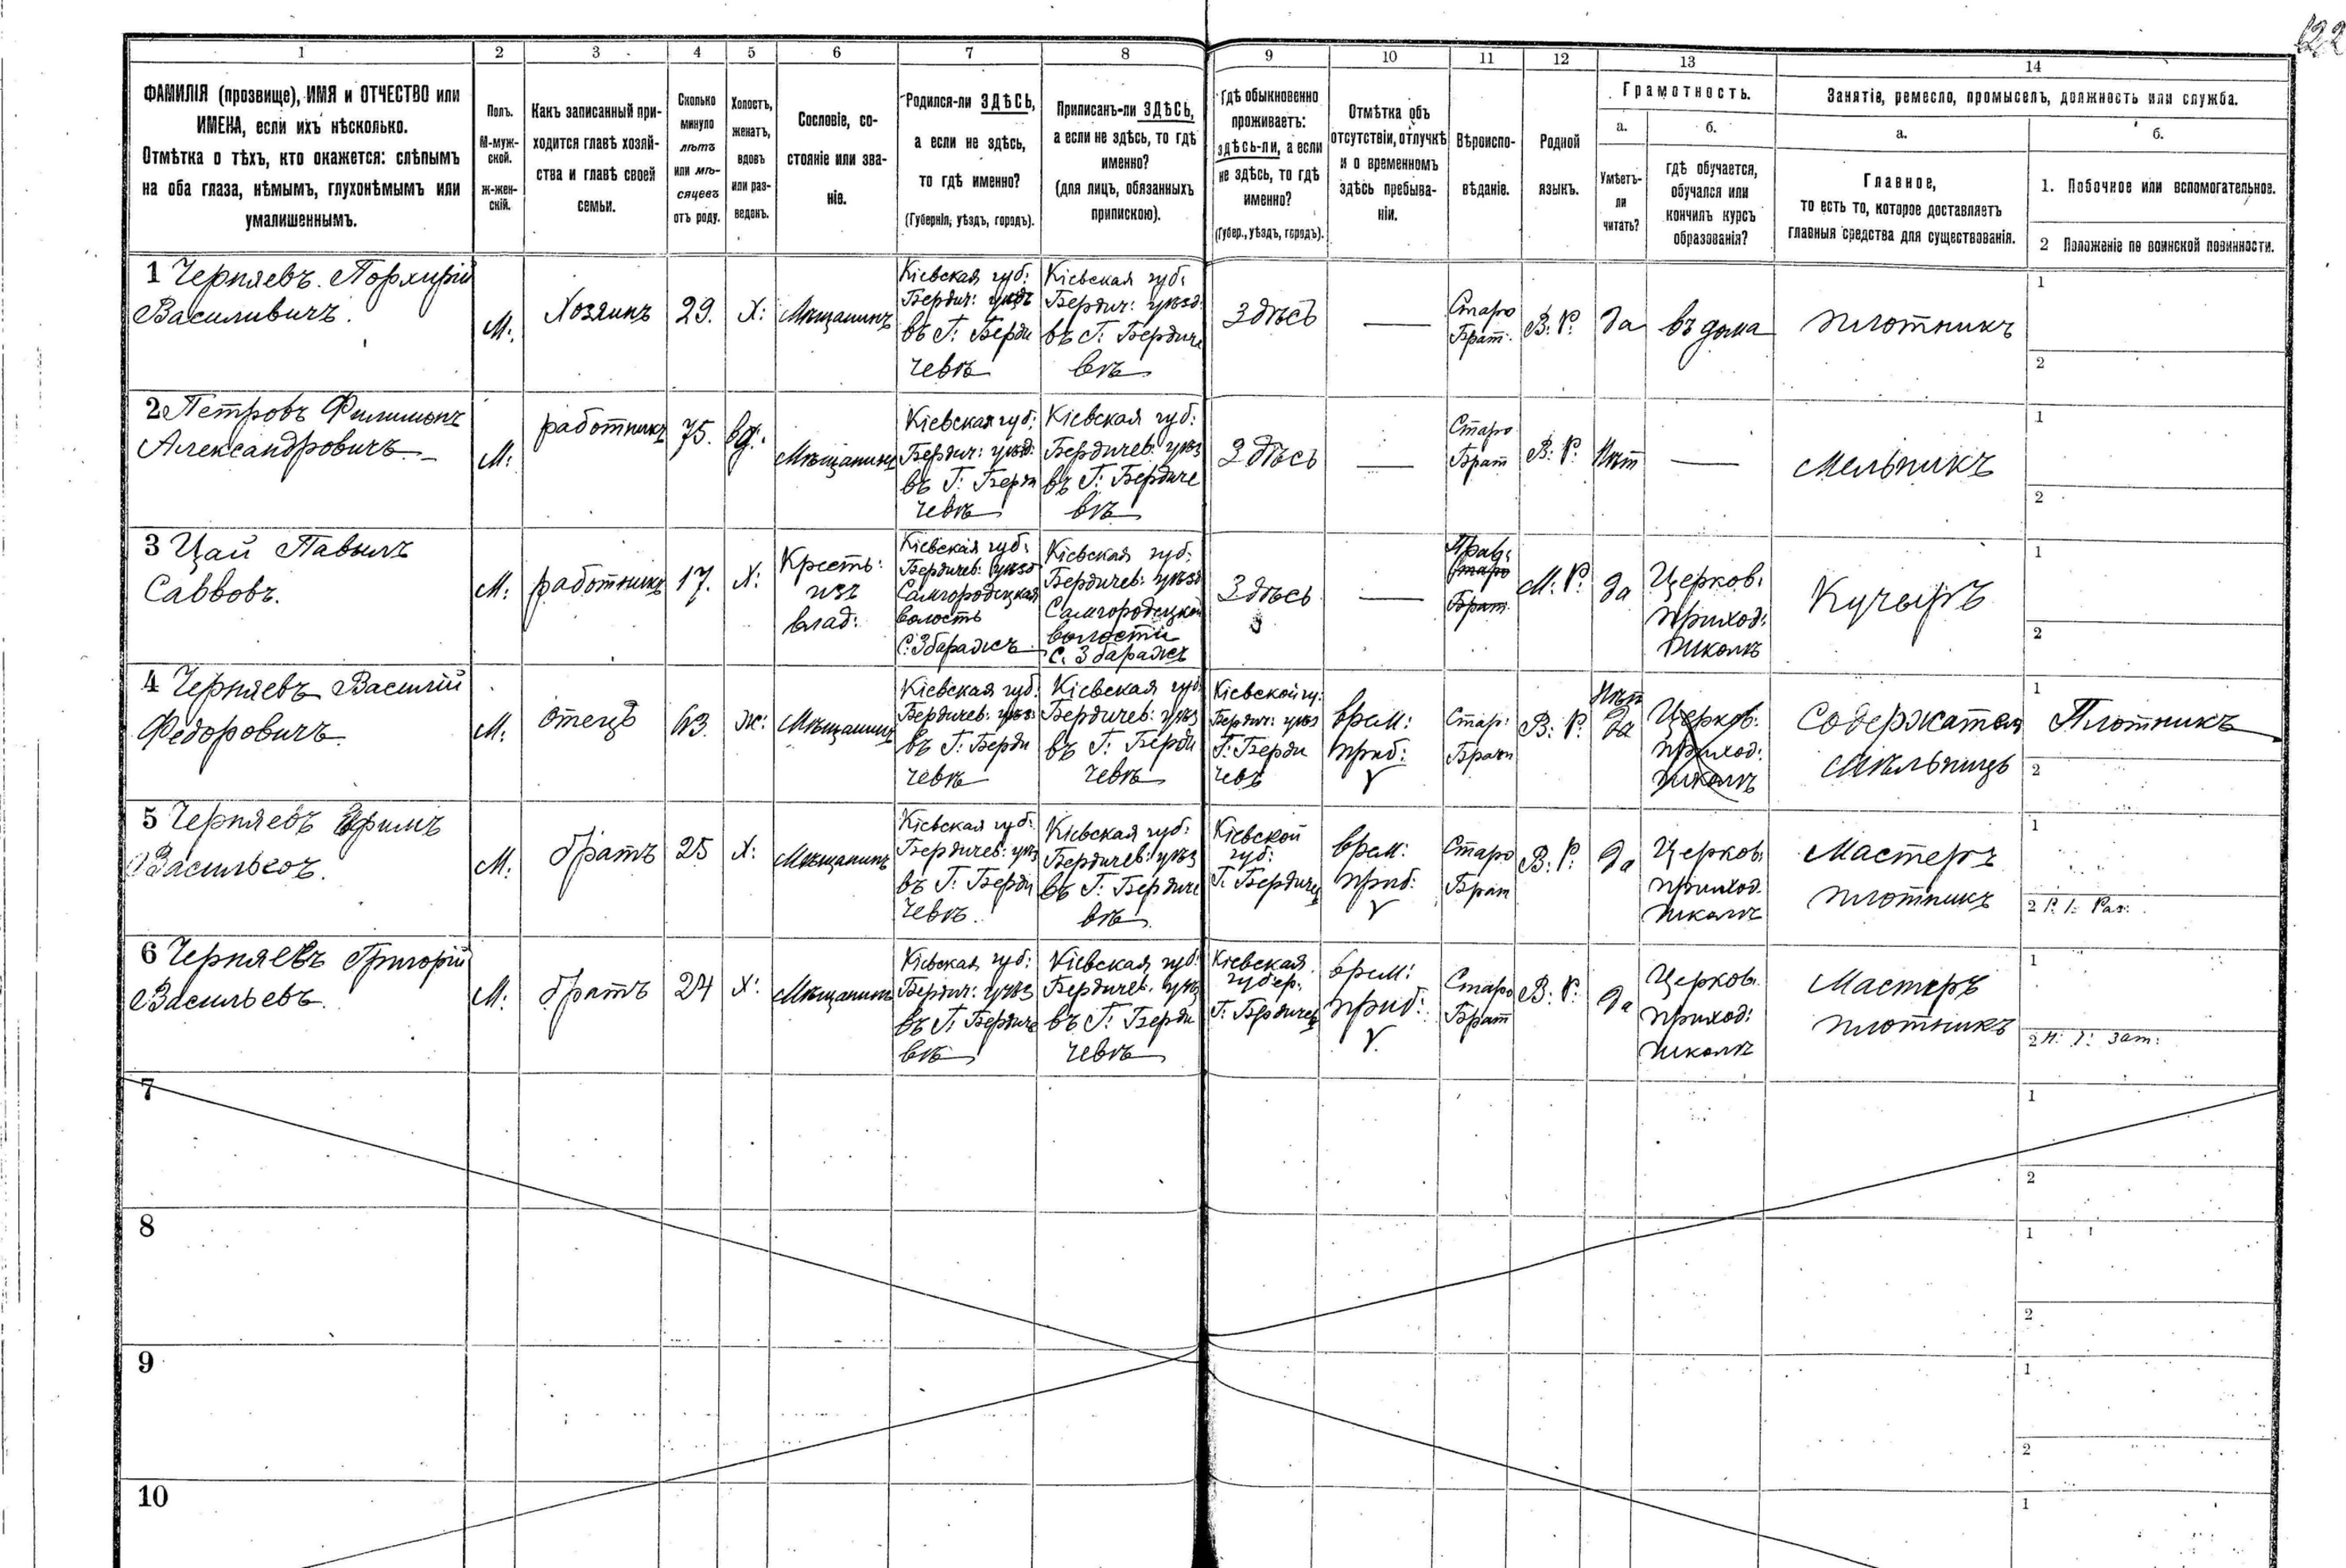 122
1
2
3
4
5
6
7
8
9
10
11
12
13
14
ФАМИЛІЯ (прозвище), ИМЯ и ОТЧЕСТВО или
ИМЕНА, если ихъ нѣсколько.
Отмѣтка о тѣхъ, кто окажется: слѣпымъ
на оба глаза, нѣмымъ, глухонѣмымъ или
умалишеннымъ.
Полъ.
М-муж-
ской.
ж-жен-
скій.
Какъ записанный при-
ходится главѣ хозяй-
ства и главѣ своей
семьи.
Сколько
минуло
лѣтъ
или мѣ-
сяцевъ
отъ роду.
Холостъ,
женатъ,
вдовъ
или раз-
веденъ.
Сословіе, со-
стояніе или зва-
ніе.
Родился-ли ЗДѢСЬ,
а если не здѣсь,
то гдѣ именно?
(Губернія, уѣздъ, городъ).
Приписанъ-ли ЗДѢСЬ,
а если не здѣсь, то гдѣ
именно?
(для лицъ, обязанныхъ
припискою).
Гдѣ обыкновенно
проживаетъ:
здѣсь-ли, а если
не здѣсь, то гдѣ
именно?
(Губер., уѣздъ, городъ).
Отмѣтка объ
отсутствіи, отлучкѣ
и о временномъ
здѣсь пребыва-
ніи.
Вѣроиспо-
вѣданіе.
Родной
языкъ.
Грамотность.
а.
Умѣетъ-
ли
читать?
б.
гдѣ обучается,
обучался или
кончилъ курсъ
образованія?
Занятіе, ремесло, промыселъ, должность или служба.
а.
Главное,
то есть то, которое доставляетъ
главныя средства для существованія.
б.
1. Побочное или вспомогательное.
2 Положеніе по воинской повинности.
1 Черняевъ. Порхирій
Василивичъ.
М:
Хозяинъ
29.
Х:
Мѣщанинъ
Кіевская губ:
Бердич: уѣздъ
въ Г: Берди
чевѣ
Кіевская губ:
Бердич: уѣзд:
въ Г: Бердиче
вѣ
Здѣсь
—
Старо
Брат:
В: Р:
да
въ дома
плотникъ
1
2
2 Петровъ Филимонъ
Александровичъ
М:
работникъ
75.
вд:
Мѣщанинъ
Кіевская губ:
Бердич: уѣзд:
въ Г: Берди
чевѣ
Кіевская губ:
Бердичев: уѣз
въ Г: Бердиче
вѣ
Здѣсь
—
Старо
Брат
В: Р:
Нѣт
—
Мельникъ
1
2
3 Цай Павылъ
Саввовъ.
М:
работникъ
17.
Х:
Кресть:
изъ
влад:
Кіевская губ:
Бердичев: уѣзд
Самгородецкая
волость
С: Збаражъ
Кіевская губ:
Бердичев: уѣзд
Самгородецкой
волости
С: Збаражъ
Здѣсь
—
Прав:
Старо
Брат.
М: Р:
да
Церков:
приход:
школѣ
Кучыръ
1
2
4 Черняевъ Василій
Федоровичъ
М:
отецъ
63.
ж:
Мѣщанинъ
Кіевская губ:
Бердичев: уѣз:
въ Г: Берди
чевѣ
Кіевская губ
Бердичев: уѣз
въ Г: Берди
чевѣ
Кіевской гу:
Бердич: уѣз
Г: Берди
чевъ
врем:
приб:
Стар:
Брат
В: Р:
Нѣт
да
Церков:
приход:
школѣ
Содержатол
мѣльницъ
1
Плотникъ
2
5 Черняевъ Ефимъ
Васильеоъ.
М:
братъ
25
Х:
Мѣщанинъ
Кіевская губ:
Бердичев: уѣз
въ Г: Берди
чевѣ.
Кіевская губ:
Бердичев: уѣз
въ Г: Бердиче
вѣ
Кіевской
губ:
Г: Бердичев
врем:
приб:
Старо
Брат
В: Р:
да
Церков:
приход:
школѣ
Мастеръ
плотникъ
1
2 Р: 1: Раз:
6 Черняевъ Григорій
Васильевъ.
М:
братъ
24
Х:
Мѣщанинъ
Кіевская губ:
Бердич: уѣз
въ Г: Бердиче
вѣ
Кіевская губ:
Бердичев: уѣз
въ Г: Берди
чевѣ
Кіевская
губер:
Г: Бердичев
врем:
приб:
Старо
Брат
В: Р:
да
Церков:
приход:
школѣ
Мастеръ
плотникъ
1
2
зат:
7
1
2
8
1
2
9
1
2
10
1